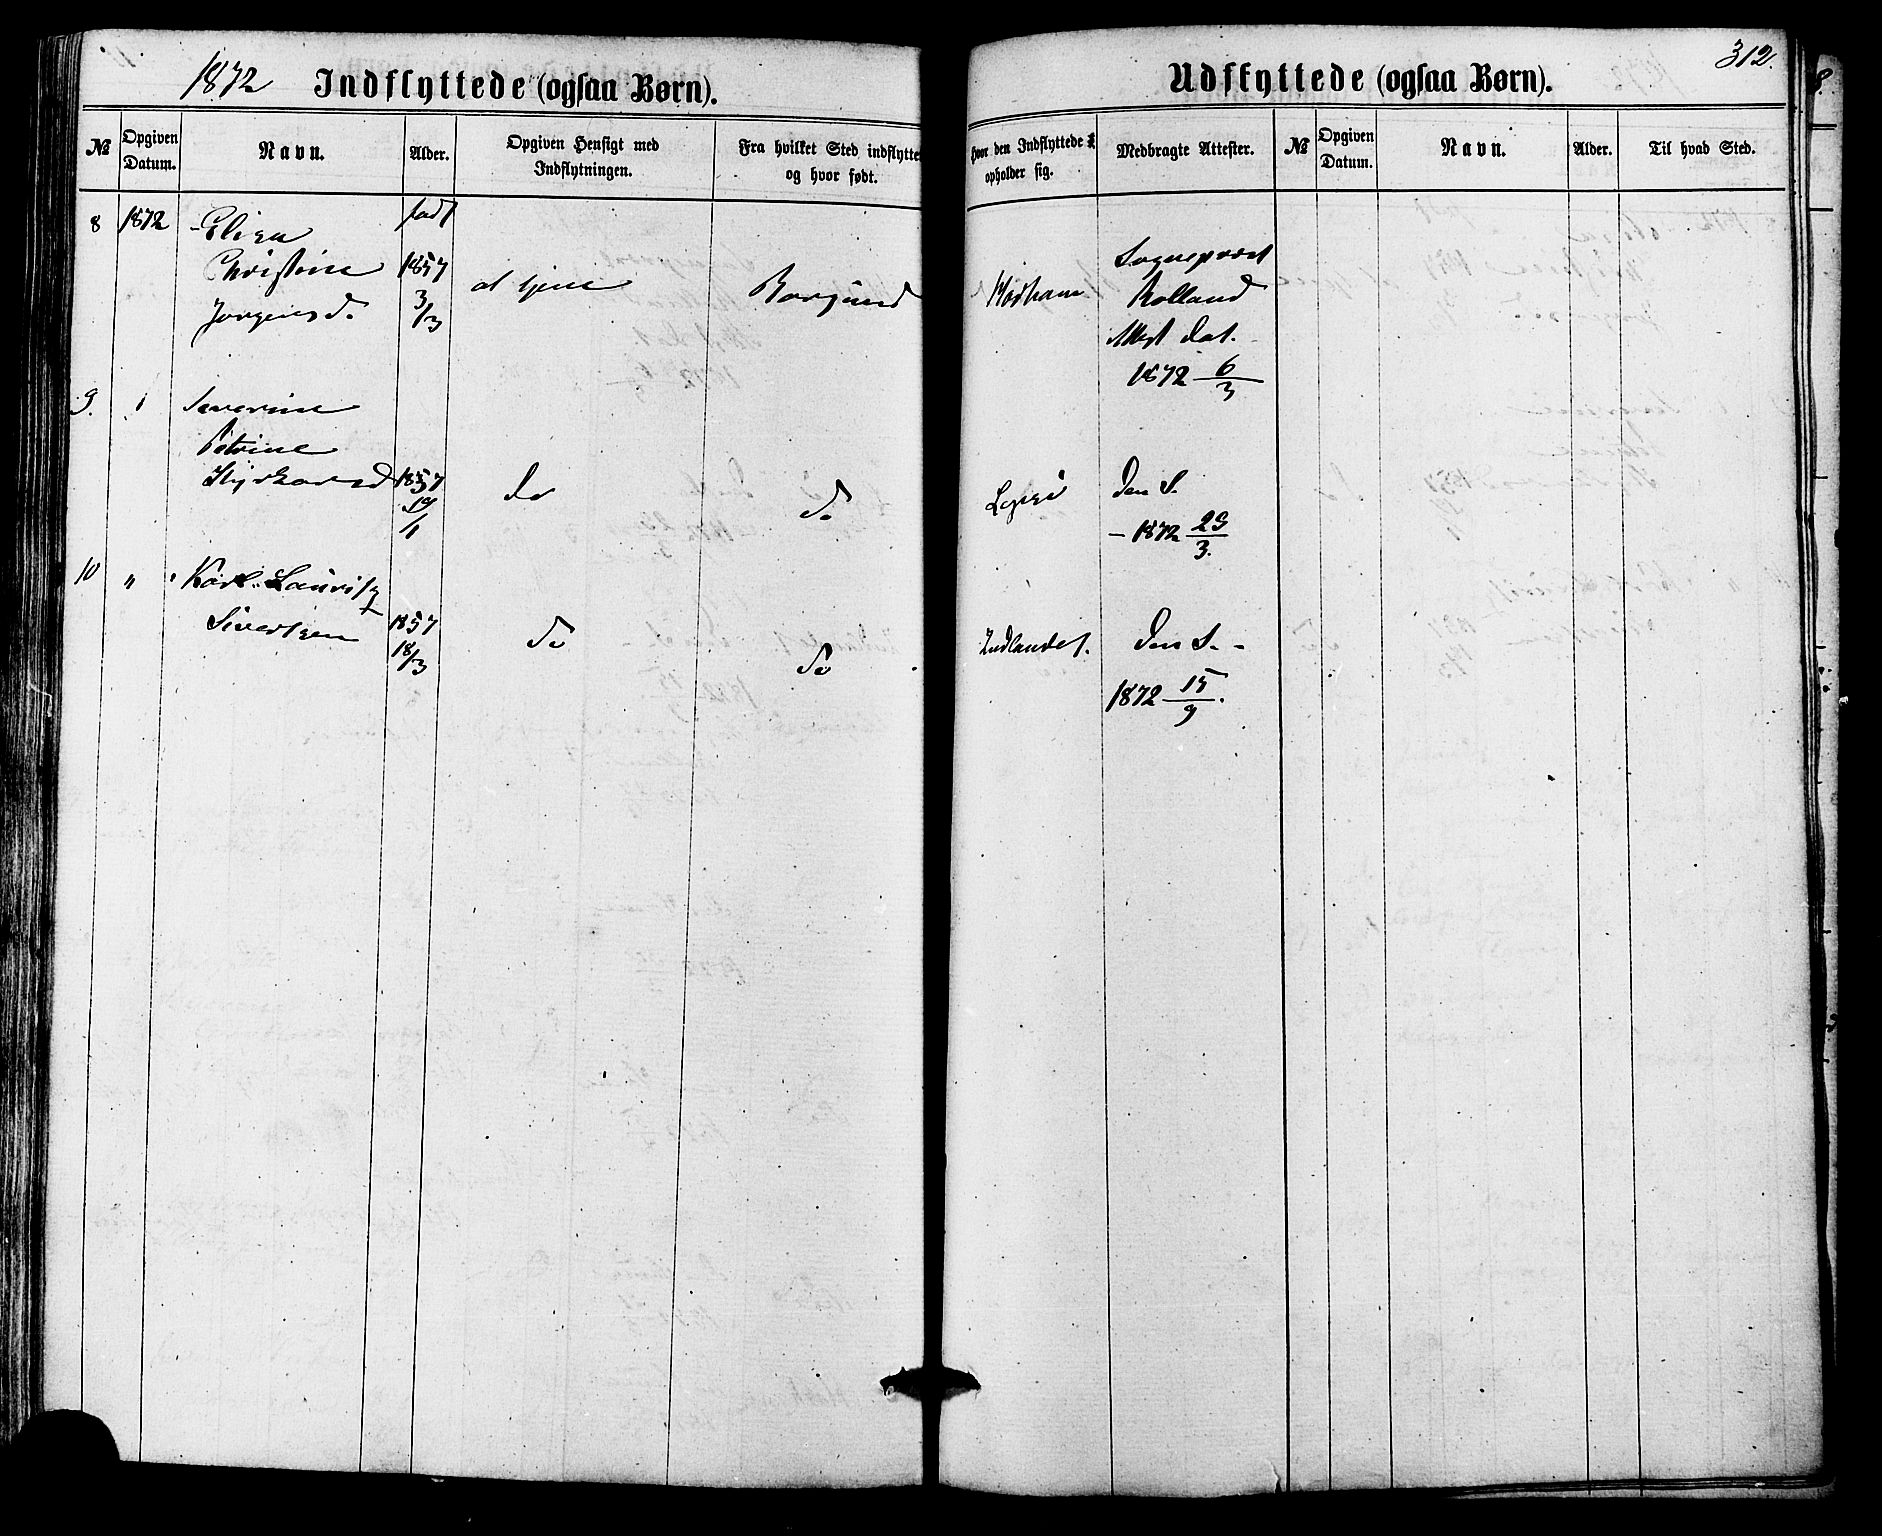 1872 Indflyttede (ogsaa Børn).
№
Opgiven Datum.
Navn.
Alder.
Opgiven Hensigt med Indflytningen.
Fra hvilket Sted indflyttet og hvor født.
8 1872 Elisa
Christine
Jørgensd.
født
1857
3/3
at tjene
Borgund
9.
Severine
Petrine
1857
19/1
do
do
10 " Karl Lauritz
Sivertsen
1857
18/3
do
do
312.
Udflyttede (ogsaa Børn).
Hvor den Indflyttede opholder sig.
Medbragte Attester.
№
Opgiven Datum.
Navn.
Alder.
Til hvad Sted.
Sognepræst
Rolland
Attest dat.
1872 6/3
Den S.
– 1872 29/3.
Indlandet.
Den S. -
1872 15/9.